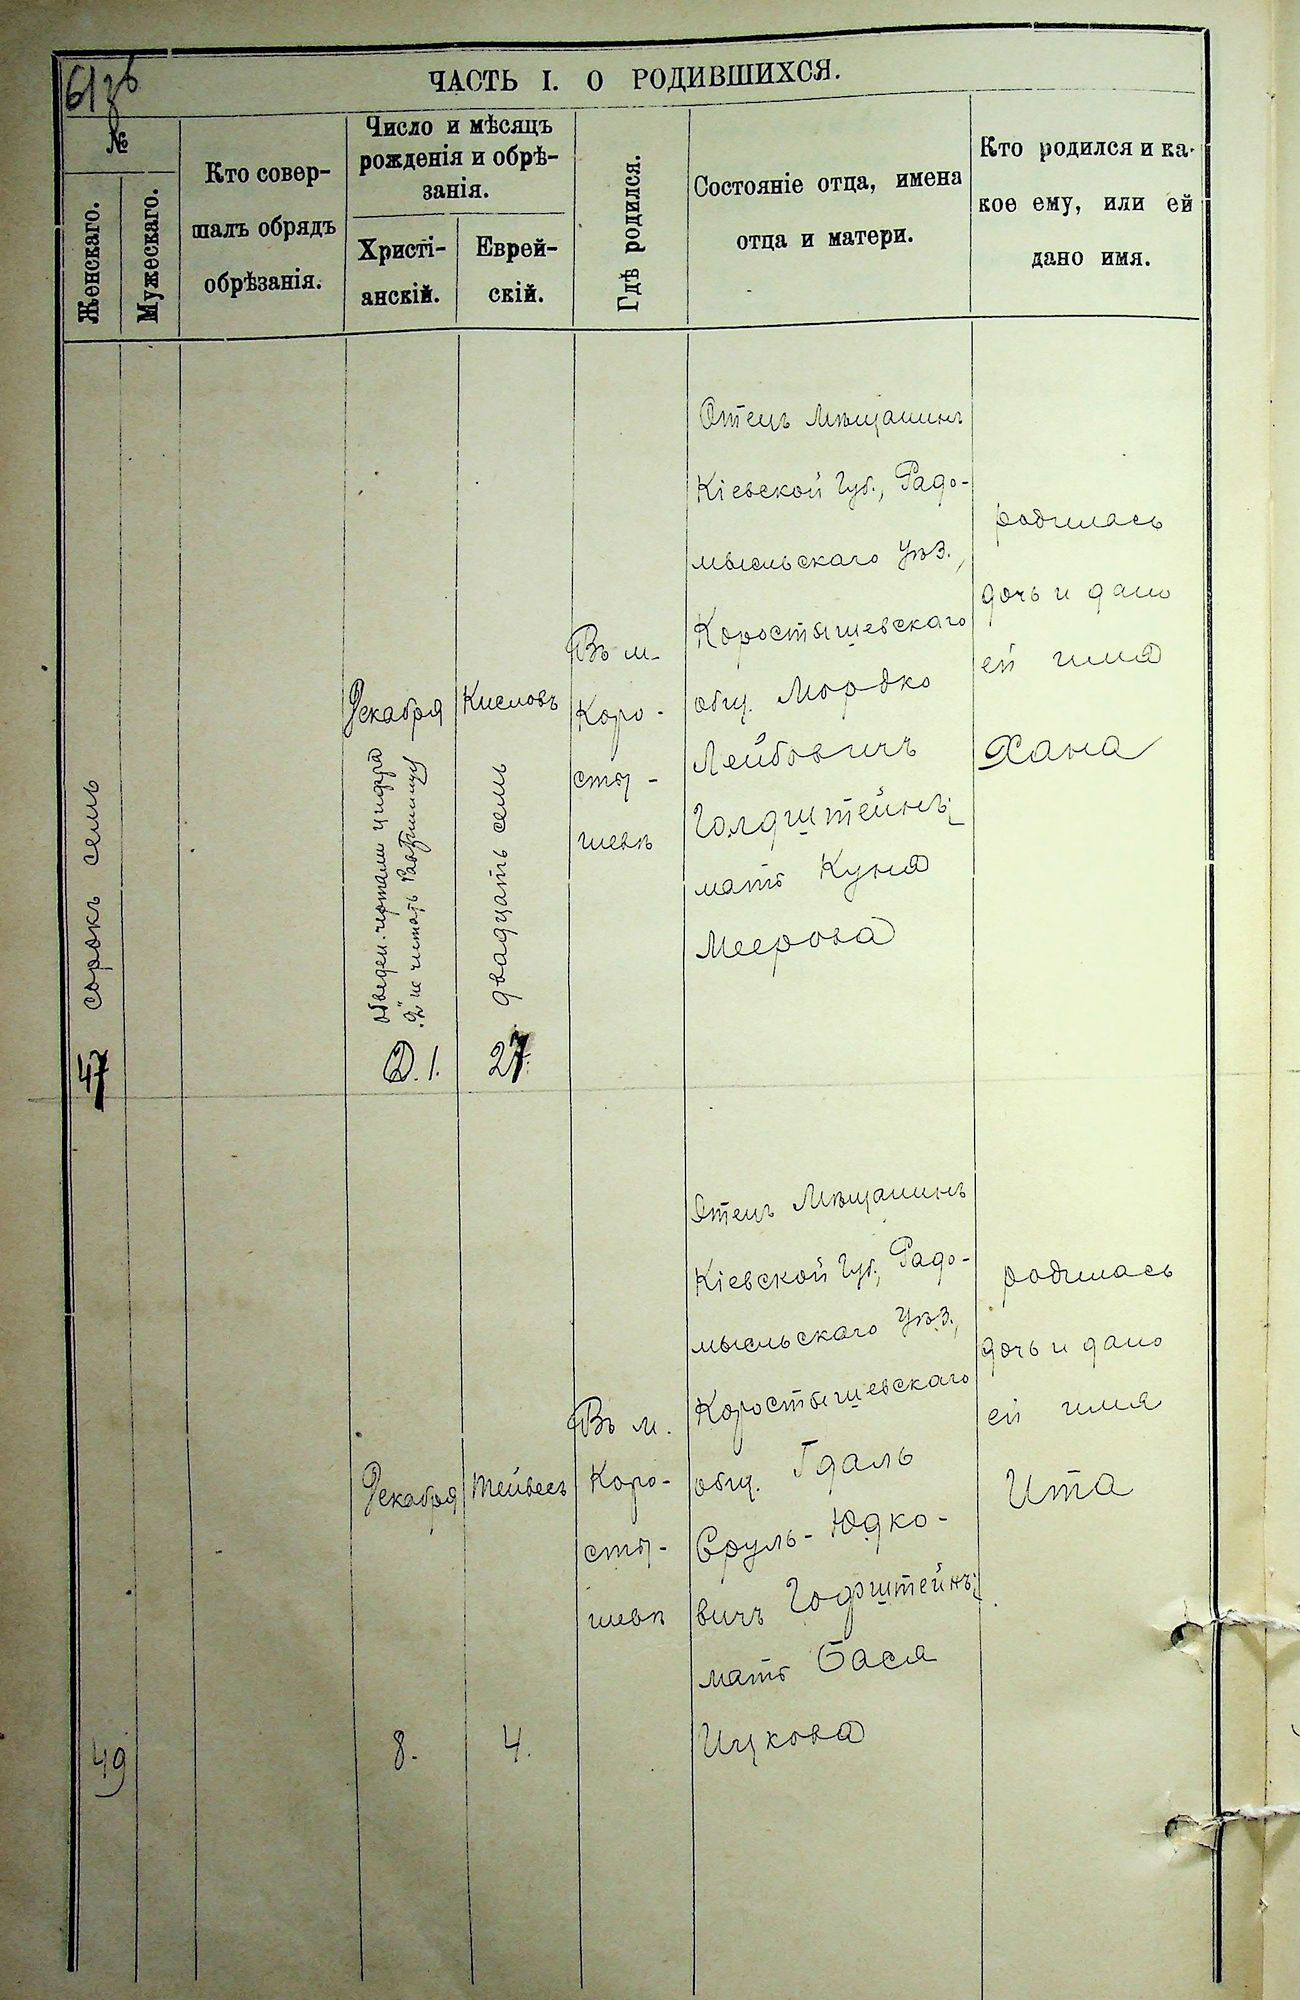 ЧАСТЬ I. О РОДИВШИХСЯ.
№
Женскаго.
Мужескаго.
Кто совер-
шалъ обрядъ
обрѣзанія.
Число и мѣсяцъ
рожденія и обрѣ-
занія.
Христі-
анскій.
Еврей-
скій.
Гдѣ родился.
Состояніе отца, имена
отца и матери.
Кто родился и ка-
кое ему, или ей
дано имя.
47 сорокъ семь
Декабря
обведен. чертами цифра
"2" не читать Раввинъ
2. 1.
Кислевъ
двадцать семь
27.
Въ м.
Коро-
сты-
шевѣ
Отецъ Мѣщанинъ
Кіевской Губ., Радо-
мысльскаго Уѣз.,
Коростышевскаго
общ. Мордко
Лейбовичъ
Голдштейнъ;
мать Куня
Меерова
родилась
дочь и дано
ей имя
Хана
49
Декабря
8.
Тейвесъ
4.
Въ м.
Коро-
сты-
шевѣ
Отецъ Мѣщанинъ
Кіевской Губ., Радо-
мысльскаго Уѣз.,
Коростышевскаго
общ. Гдаль
Сруль-Юдко-
вичъ Гофштейнъ;
мать Бася
Ицкова
родилась
дочь и дано
ей имя
Ита